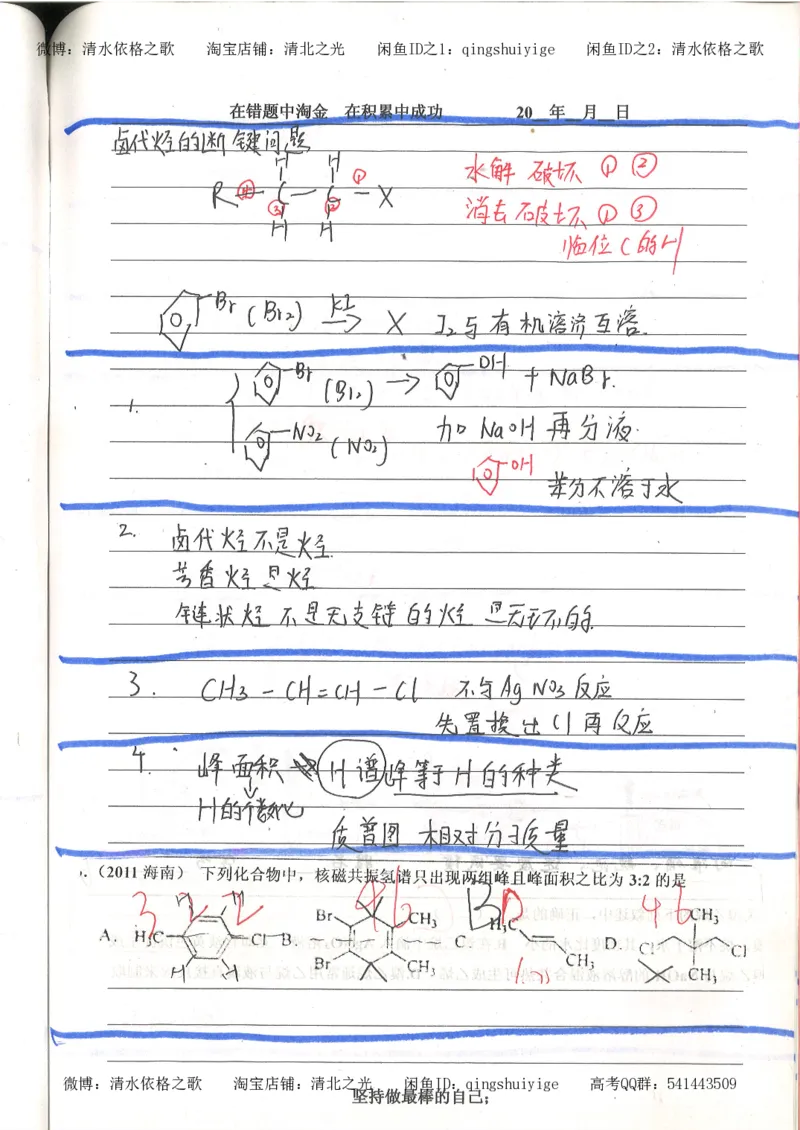 微博：清水依格之歌 淘宝店铺：清北之光 闲鱼ID之1：qingshuiyige 闲鱼ID之2：清水依格之歌
在错题中淘金 在积累中成功 20__年__月__日
卤代烃的断键问题
H H ①
R ④ C — C — X
③ ②
H H
水解 破坏 ① ②
消去 破坏 ① ③
临位C的H
Br (Br₂) KI→ X I₂与有机溶济互溶.
1. Br (Br₂) → OH + NaBr.
NO₂ (NO₂) 加NaOH再分液.
OH 苯分不溶于水
2. 卤代烃不是烃.
芳香烃是烃
链状烃 不是无支链的烃 是无环的.
3. CH3 - CH = CH - Cl 不与AgNO3反应
先置换出Cl再反应
4. 峰面积 H谱峰等于H的种类
H的个数化
质普图 相对分子质量
（2011 海南） 下列化合物中，核磁共振氢谱只出现两组峰且峰面积之比为 3:2 的是
3 2 2 4 6 B 4 6
A. H₃C Cl H H H H
B. Br Br CH₃ CH₃
C. H₃C CH₃
D. Cl Cl CH₃ CH₃
微博：清水依格之歌 淘宝店铺：清北之光 闲鱼ID：qingshuiyige 高考QQ群：541443509
坚持做最棒的自己；